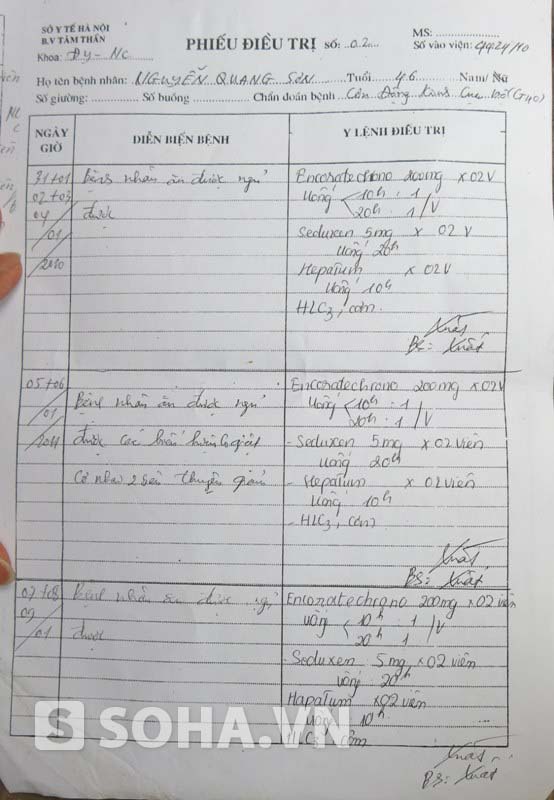 SỞ Y TẾ HÀ NỘI
B.V TÂM THẦN
Khoa: Dy-NC
PHIẾU ĐIỀU TRỊ SỐ: .0.2...
MS:
Số vào viện:
Họ tên bệnh nhân: NGUYỄN QUANG SƠN Tuổi 46 Nam/ Nữ
Số giường: Số buồng Chẩn đoán bệnh Cơn Động kinh (G40)
NGÀY GIỜ
DIỄN BIẾN BỆNH
Y LỆNH ĐIỀU TRỊ
31+01
02+03
04/
/01
Bệnh nhân ăn được ngủ
được
Encoratechrono 200mg x 02V
Uống 10h . 1
20h . 1 /V
Seduxen 5mg x 02 V
Uống 20h
Hepatum x 02V
Uống 10h
HLC3, cơm.
Xuất
BS: Xuất
05+06
/01
Bệnh nhân ăn được ngủ
được
thuyên giảm
Encoratechrono 200mg x 02V
Uống 10h . 1
20h . 1 /V
- Seduxen 5mg x 02 viên
Uống 20h
- Hepatum x 02 viên
Uống 10h
- HLC3, cơm
Xuất
BS: Xuất
07+08
09
/01
Bệnh nhân ăn được ngủ
được
Enconatechrono 200mg x 02 viên
uống 10h . 1
20h 1 /V
Seduxen 5mg x 02 viên
uống 20h
Hapatum x 02 viên
uống 10h
HLC3 cơm
Xuất
BS: Xuất
S SOHA.VN